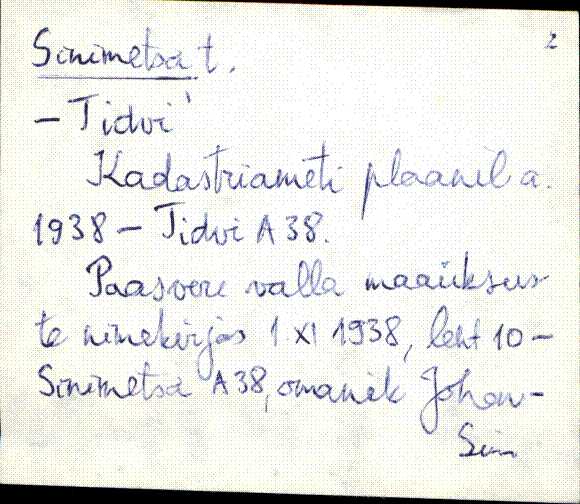 Sinimetsa t. 2
– Tidvi'
Kadastriameti plaanil a.
1938 – Tidvi A 38.
Paasvere valla maaüksus-
te nimekirjas 1 XI 1938, leht 10 –
Sinimetsa A 38, omanik Johan-